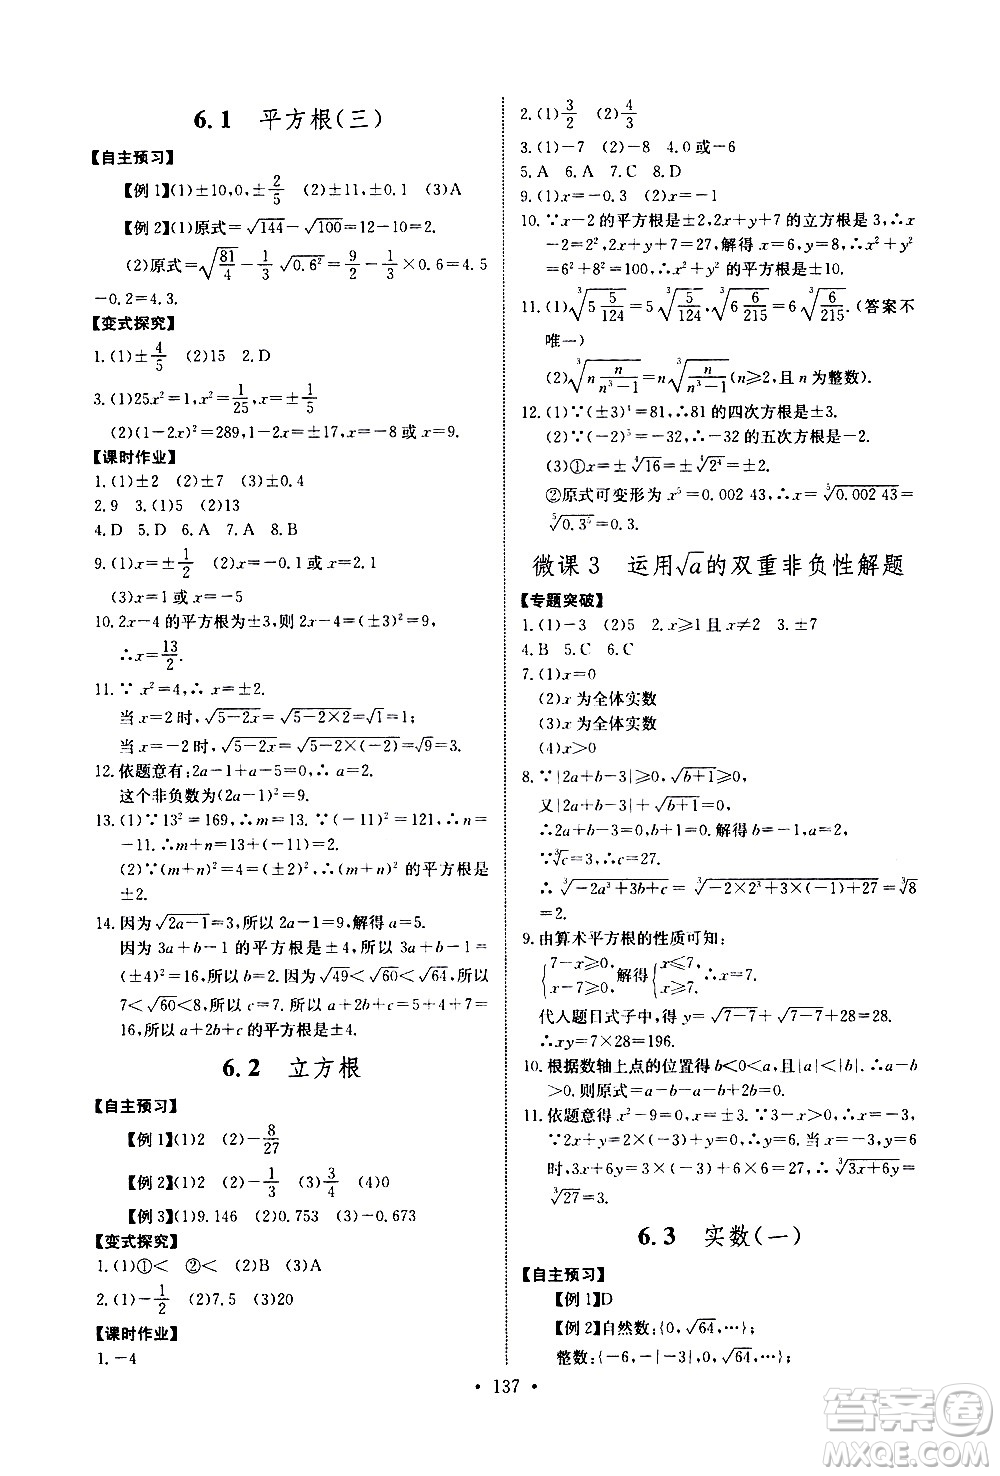 6.1 平方根(三)
【自主预习】
【例1】(1)±10,0,±2/5 (2)±11,±0.1 (3)A
【例2】(1)原式=√144-√100=12-10=2.
(2)原式=√(81/4)-1/3√0.6²=9/2-1/3×0.6=4.5
-0.2=4.3.
【变式探究】
1.(1)±4/5 (2)15 2.D
3.(1)25x²=1,x²=1/25,x=±1/5
(2)(1-2x)²=289,1-2x=±17,x=-8或x=9.
【课时作业】
1.(1)±2 (2)±7 (3)±0.4
2.9 3.(1)5 (2)13
4.D 5.D 6.A 7.B 8.B
9.(1)x=±1/2 (2)x=5或x=-1
(3)x=1或x=-5
10.2x-4的平方根为±3,则2x-4=(±3)²=9,
∴x=13/2.
11.∵x²=4,∴x=±2.
当x=2时,√(5-2x)=√(5-2×2)=√1=1;
当x=-2时,√(5-2x)=√(5-2×(-2))=√9=3.
12.依题意有:2a-1=-a+5=0,∴a=2.
这个非负数为(2a-1)²=9.
13.(1)∵13²=169,∴m=13.∵(-11)²=121,∴n
=-11.∴m+n=13+(-11)=2.
(2)∵(m+n)²=2²=4,∴(m+n)²的平方根是
±2.
14.因为√(2a-1)=3,所以2a-1=9,解得a=5.
因为3a+b-1的平方根是±4,所以3a+b-1=
(±4)²=16,所以b=2.因为√49<√60<√64,所以
7<√60<8,所以c=7.所以a+2b+c=5+4+7=
16,所以a+2b+c的平方根是±4.
6.2 立方根
【自主预习】
【例1】(1)2 (2)-8/27
【例2】(1)2 (2)-1/3 (3)3/4 (4)0
【例3】(1)9.146 (2)0.753 (3)-0.673
【变式探究】
1.(1)①< ②< (2)B (3)A
2.(1)-1/2 (2)7.5 (3)20
【课时作业】
1.-4
2.(1)3/2 (2)4/3
3.(1)-7 (2)-8 4.0或-6
5.A 6.A 7.C 8.D
9.(1)x=-0.3 (2)x=-1
10.∵x-2的平方根是±2,2x+y+7的立方根是3,∴x
-2=2²,2x+y+7=27,解得x=6,y=8,∴x²+y²
=6²+8²=100,∴x²+y²的平方根是±10.
11.(1)∛(5 5/124)=5∛(5/124),∛(6 6/215)=6∛(6/215).(答案不
唯一)
(2)∛(n n/(n³-1))=n∛(n/(n³-1))(n≥2,且n为整数).
12.(1)∵(±3)⁴=81,∴81的四次方根是±3.
(2)∵(-2)⁵=-32,∴-32的五次方根是-2.
(3)①x=±⁴√16=±⁴√2⁴=±2.
②原式可变形为x⁵=0.002 43,∴x=⁵√0.002 43=
⁵√0.3⁵=0.3.
微课3 运用√a的双重非负性解题
【专题突破】
1.(1)-3 (2)5 2.x≥1且x≠2 3.±7
4.B 5.C 6.C
7.(1)x=0
(2)x为全体实数
(3)x为全体实数
(4)x>0
8.∵|2a+b-3|≥0,√(b+1)≥0,
又|2a+b-3|+√(b+1)=0,
∴2a+b-3=0,b+1=0.解得b=-1,a=2.
∵∛c=3,∴c=27.
∴∛(-2a³+3b+c)=∛(-2×2³+3×(-1)+27)=∛8
=2.
9.由算术平方根的性质可知:
{7-x≥0, x-7≥0, 解得{x≤7, x≥7. ∴x=7.
代入题目式子中,得y=√(7-7)+√(7-7)+28=28.
∴xy=7×28=196.
10.根据数轴上点的位置得b<0<a,且|a|<|b|,∴a-b
>0.则原式=a-b-a-b=-2b.
11.依题意得x²-9=0,x=±3.∵3-x≠0,∴x=-3,
∵2x+y=0,∴-6+y=0,∴y=6.当x=-3,y=6
时,3x+6y=3×(-3)+6×6=27,∴∛(3x+6y)=
∛27=3.
6.3 实数(一)
【自主预习】
【例1】D
【例2】自然数:{0,√64,…};
整数:{-6,-|-3|,0,√64,…};
• 137 •
答案圈
MXQE.COM